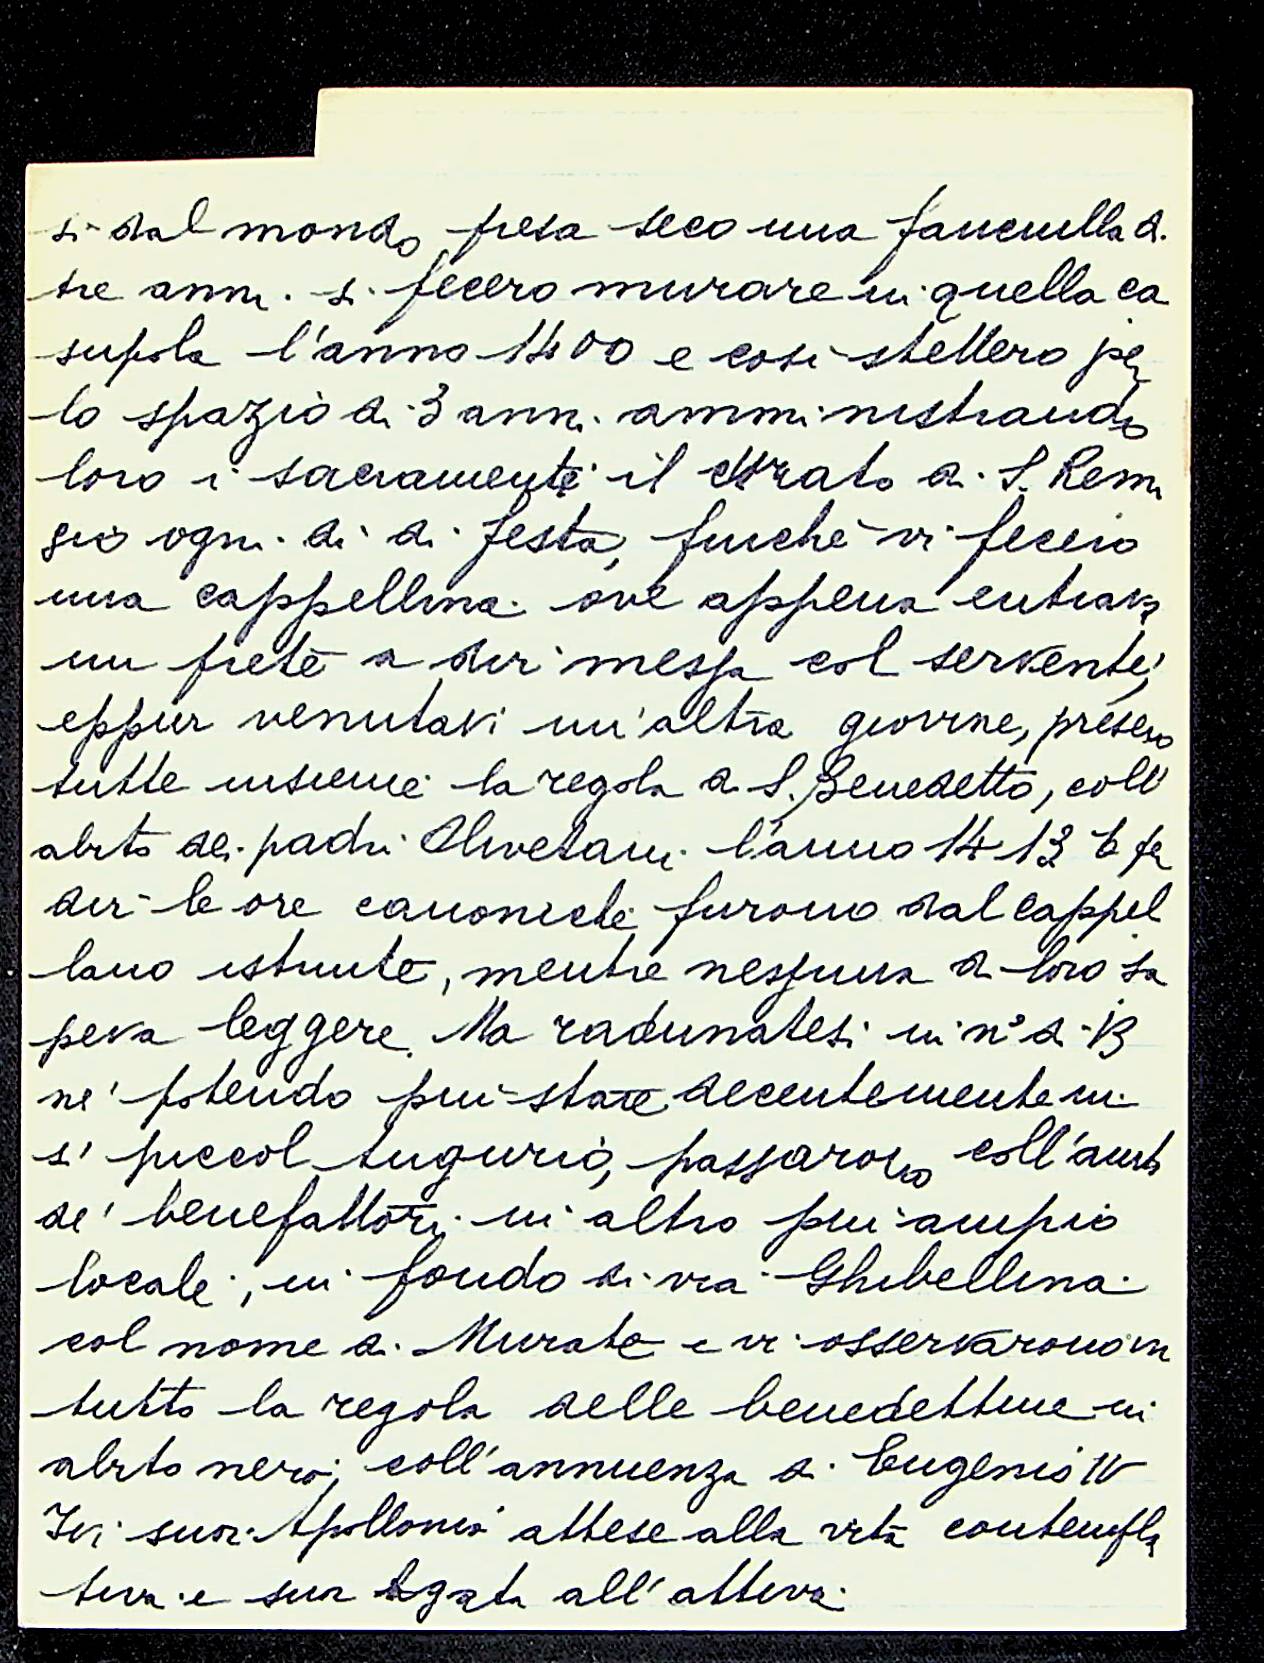 si dal mondo presa seco una fanciulla di
tre anni. si fecero murare in quella ca
supola l'anno 1400 e così stettero per
lo spazio di 3 anni. amministrando
loro i sacramenti il curato di S. Remi
gio ogni dì di festa, finché vi fecero
una cappellina ove appena entrava
un prete a dir messa col servente,
eppur venutavi un'altra giovine, presero
tutte insieme la regola di S. Benedetto, coll'
abito dei padri Olivetani l'anno 1413 E per
dir le ore canoniche furono dal cappel
lano istruite, mentre nessuna di loro sa
peva leggere. Ma radunatesi in n° di 13
né potendo più stare decentemente in
sì piccol tugurio, passarono coll'aiuto
de' benefattori in altro più ampio
locale, in fondo di via Ghibellina
col nome di Murate e vi osservarono in
tutto la regola delle benedettine in
abito nero, coll'annuenza di Eugenio IV
Ivi suor Apollonia attese alla vita contempla
tiva e suor Agata all'attiva.